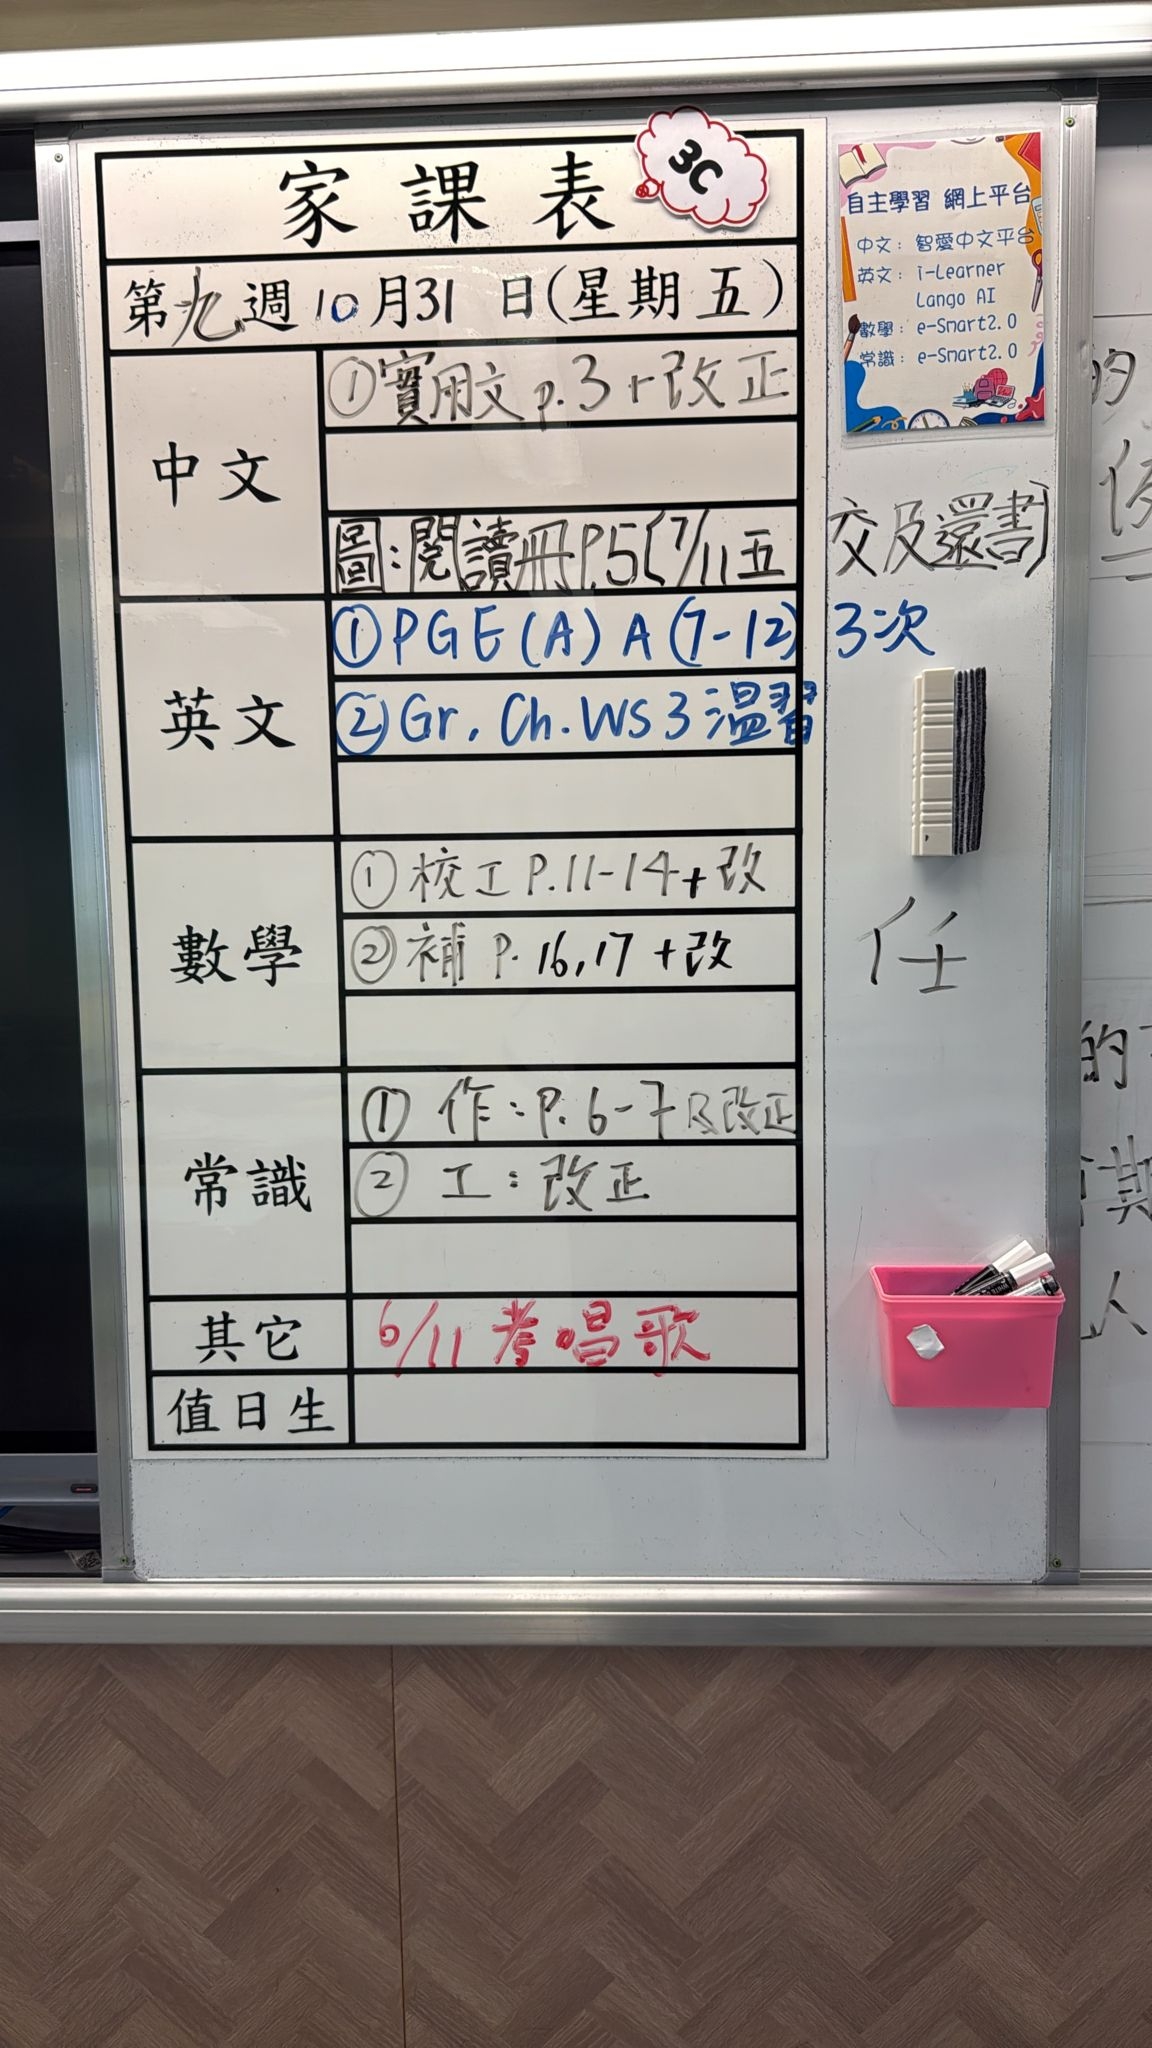 家課表
3C
第九週10月31日(星期五)
中文
①實用文 p.3 + 改正
圖:閱讀冊P.5(7/11五 交及還書)
英文
①PGE(A) A(7-12) 3次
②Gr. Ch. WS 3 溫習
數學
①校工 P.11-14+改
②補 P.16,17 +改
常識
①作:P.6-7及改正
②工:改正
其它
6/11 考唱歌
值日生
自主學習 網上平台
中文:智愛中文平台
英文:i-Learner
Lango AI
數學:e-Smart2.0
常識:e-Smart2.0
任
的
的
期
人